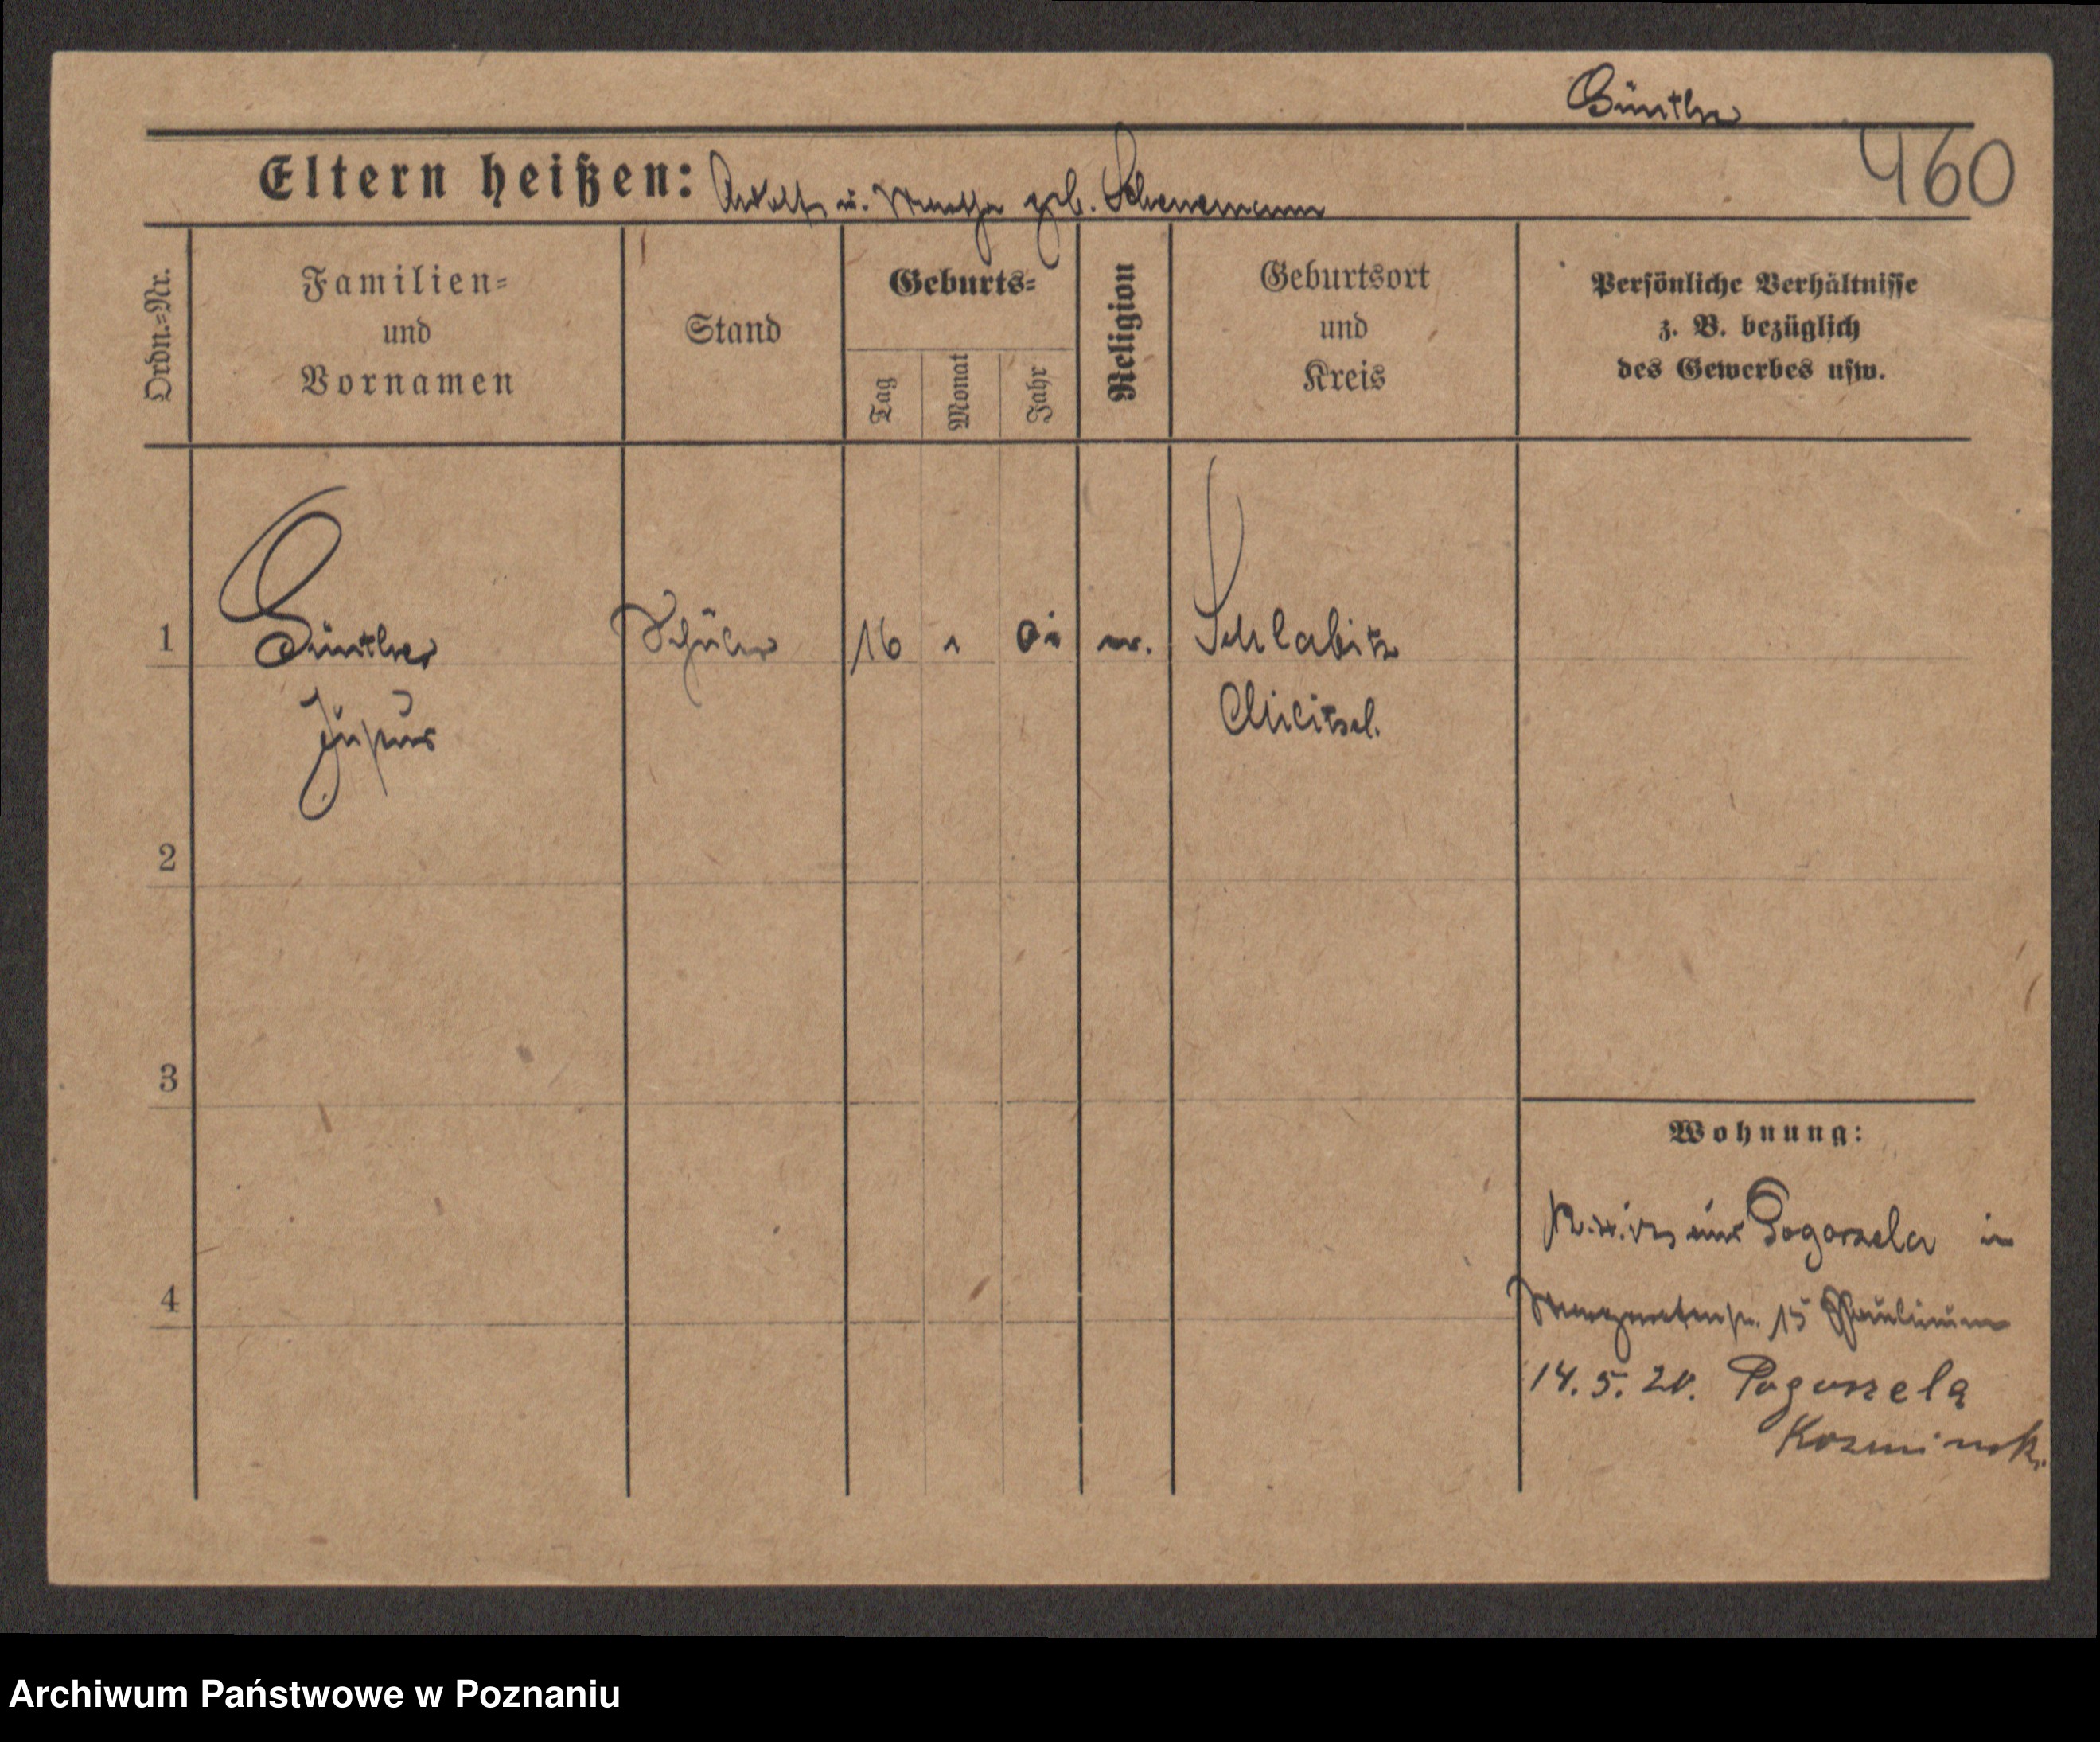 Günther
460
Eltern heißen: Adolf u. Martha geb. Scheunemann
Ordn.=Nr.
Familien=
und
Vornamen
Stand
Geburts=
Tag
Monat
Jahr
Religion
Geburtsort
und
Kreis
Persönliche Verhältnisse
z. B. bezüglich
des Gewerbes usw.
1
Günther
Schüler
16
Schlabitz
Militsch.
2
3
4
Wohnung:
aus Pogorzela in
15 Paulinum
14. 5. 20. Pogorzela
Kosminsk.
Archiwum Państwowe w Poznaniu